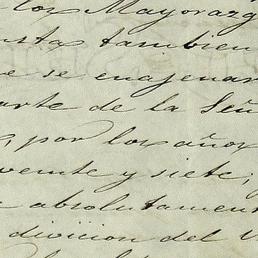 los Mayorazg
ta tambien
e se enagenar
arte de la Señ
, por los años
veinte y siete;
absolutamen
division del V